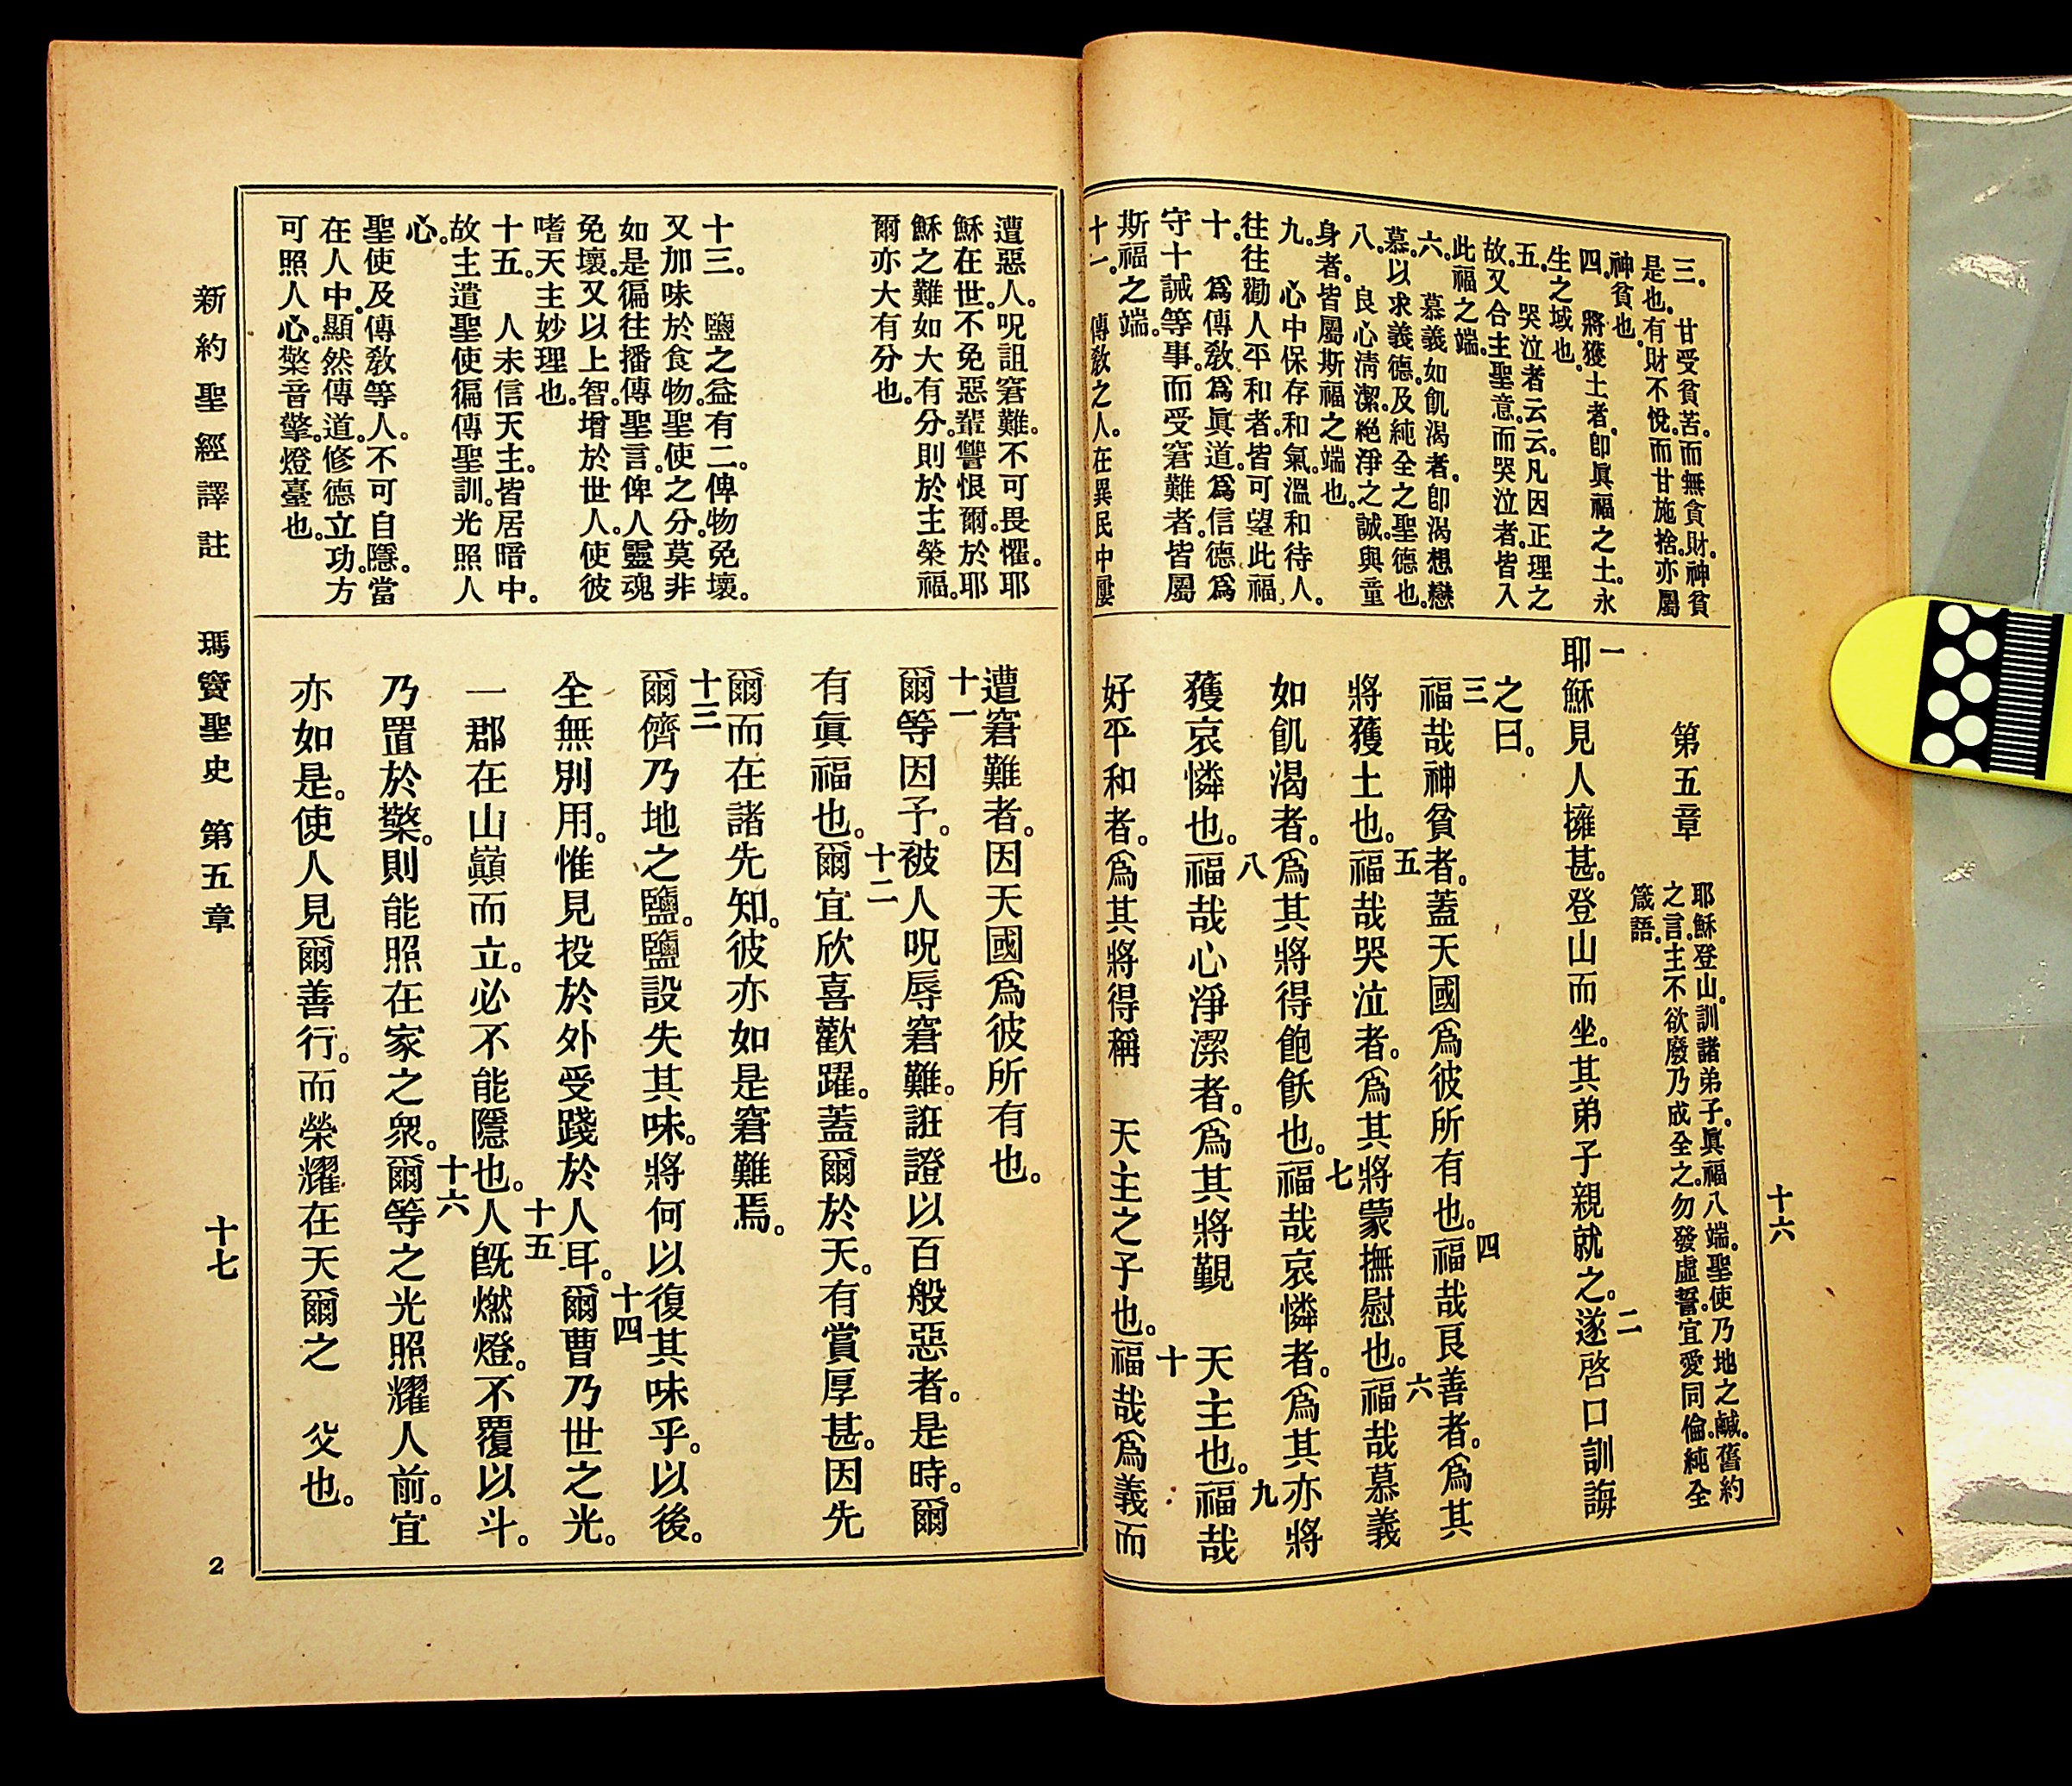 十六
三。甘受貧苦。而無貪財。神貧
是也。有財不悅。而甘施捨。亦屬
神貧也。
四。將獲土者。卽眞福之土。永
生之域也。
五。哭泣者云云。凡因正理之
故。又合主聖意。而哭泣者。皆入
此福之端。
六。慕義如飢渴者。卽渴想戀
慕。以求義德。及純全之聖德也。
八。良心清潔。絶淨之誠。與童
身者。皆屬斯福之端也。
九。心中保存和氣。溫和待人。
往往勸人平和者。皆可望此福。
十。爲傳敎。爲眞道。爲信德。爲
守十誡等事。而受窘難者。皆屬
斯福之端。
十一。傳敎之人。在異民中。屢
第五章
耶穌登山。訓諸弟子。眞福八端。聖使乃地之鹹。舊約
之言。主不欲廢。乃成全之。勿發虛誓。宜愛同倫。純全
箴語。
一耶穌見人擁甚。登山而坐。其弟子親就之。二遂啓口訓誨
之曰。
三福哉神貧者。蓋天國爲彼所有也。四福哉良善者。爲其
將獲土也。五福哉哭泣者。爲其將蒙撫慰也。六福哉慕義
如飢渴者。爲其將得飽飫也。七福哉哀憐者。爲其亦將
獲哀憐也。八福哉心淨潔者。爲其將覲 天主也。九福哉
好平和者。爲其將得稱 天主之子也。十福哉爲義而
遭惡人。呪詛窘難。不可畏懼。耶
穌在世。不免惡輩讐恨。爾於耶
穌之難。如大有分。則於主榮福。
爾亦大有分也。
十三。鹽之益有二。俾物免壞。
又加味於食物。聖使之分。莫非
如是。徧往播傳聖言。俾人靈魂
免壞。又以上智。增於世人。使彼
嗜天主妙理也。
十五。人未信天主。皆居暗中。
故主遣聖使。徧傳聖訓。光照人
心。
聖使及傳敎等人。不可自隱。當
在人中。顯然傳道。修德立功。方
可照人心。檠音擎。燈臺也。
遭窘難者。因天國爲彼所有也。
十一爾等因予。被人呪辱窘難。誑證以百般惡者。是時。爾
有眞福也。十二爾宜欣喜歡躍。蓋爾於天。有賞厚甚。因先
爾而在諸先知。彼亦如是窘難焉。
十三爾儕乃地之鹽。鹽設失其味。將何以復其味乎。以後。
全無別用。惟見投於外。受踐於人耳。十四爾曹乃世之光。
一郡在山巔而立。必不能隱也。十五人旣燃燈。不覆以斗。
乃置於檠。則能照在家之衆。十六爾等之光照耀人前。宜
亦如是。使人見爾善行。而榮耀在天爾之 父也。
新約聖經譯註 瑪竇聖史 第五章 十七
2